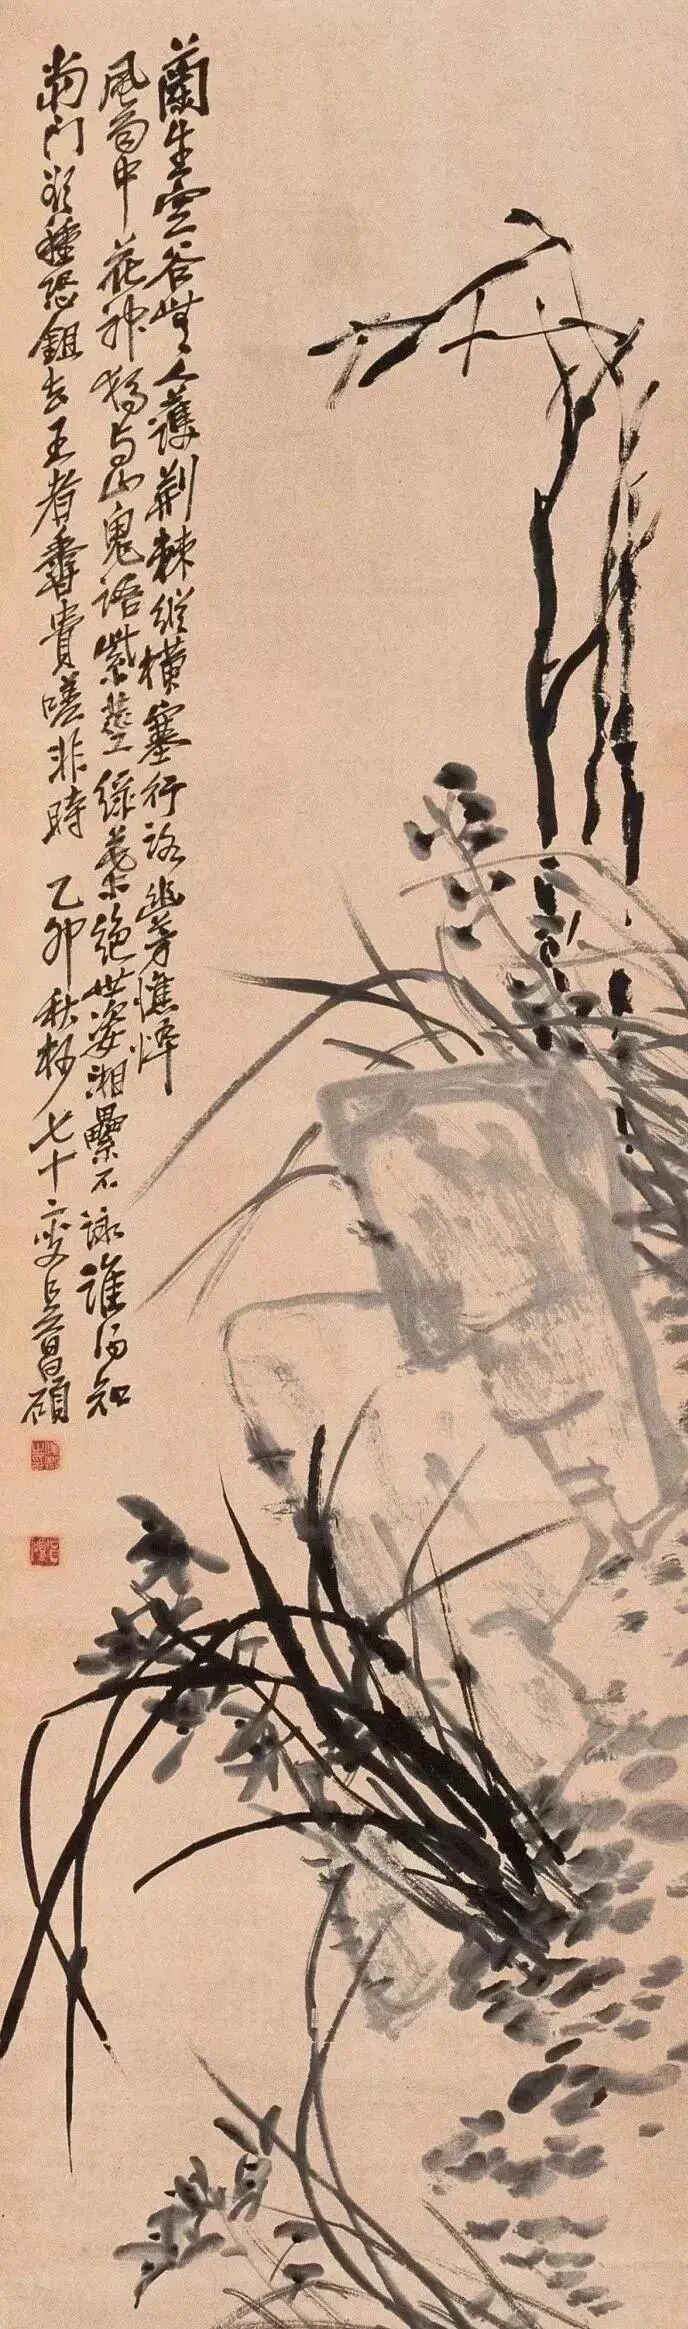 蘭生空谷無人護荆棘縱橫塞行路幽芳憔悴
風雨中花神猶与山鬼語紫莖綠葉絕世姿湘纍不詠誰得知
當門欲種恐鉏去王者香貴嗟非時 乙卯秋杪七十二叟吳昌碩